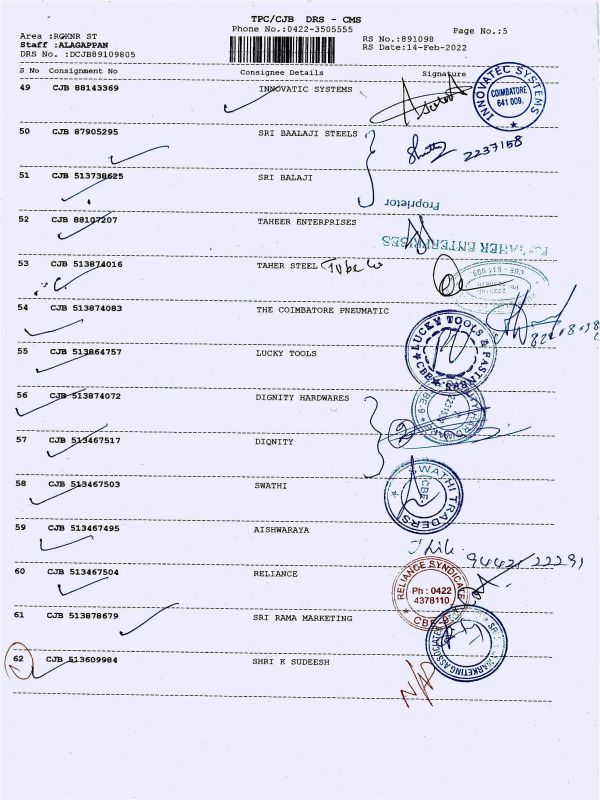 TPC/CJB DRS - CMS
Phone No.:0422-3505555
Page No.:5
Area :RGKNR ST
Staff :ALAGAPPAN
DRS No. :DCJB89109805
RS No.:891098
RS Date:14-Feb-2022
S No Consignment No Consignee Details Signature
49 CJB 88143369 INNOVATIC SYSTEMS
INNOVATEC SYSTEMS
COIMBATORE
641 009.
50 CJB 87905295 SRI BAALAJI STEELS
2237158
51 CJB 513738625 SRI BALAJI
Proprietor
52 CJB 88107207 TAHEER ENTERPRISES
For TAHER ENTERPRISES
53 CJB 513874016 TAHER STEEL Tube Co
CBE - 641 009
54 CJB 513874083 THE COIMBATORE PNEUMATIC
55 CJB 513864757 LUCKY TOOLS
LUCKY TOOLS
CBE
56 CJB 513874072 DIGNITY HARDWARES
CBE-9
57 CJB 513467517 DIQNITY
2
58 CJB 513467503 SWATHI
SWATHI TRADERS
CBE.
59 CJB 513467495 AISHWARAYA
94421 22291
60 CJB 513467504 RELIANCE
RELIANCE SYNDICATE
Ph : 0422
4378110
CBE-9
61 CJB 513878679 SRI RAMA MARKETING
SRI
MARKETING ASSOCIATES
62 CJB 513609984 SHRI K SUDEESH
N/A